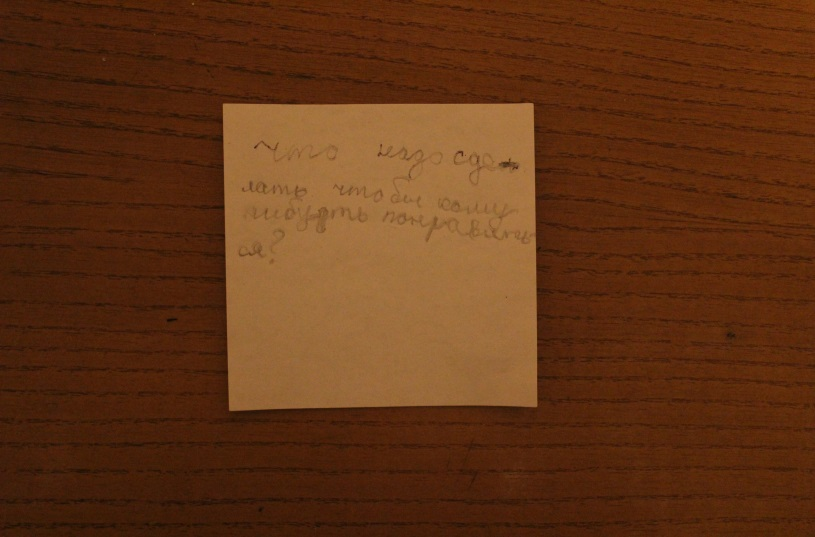 что надо сде
лать чтобы кому
нибурть понравить
ся?